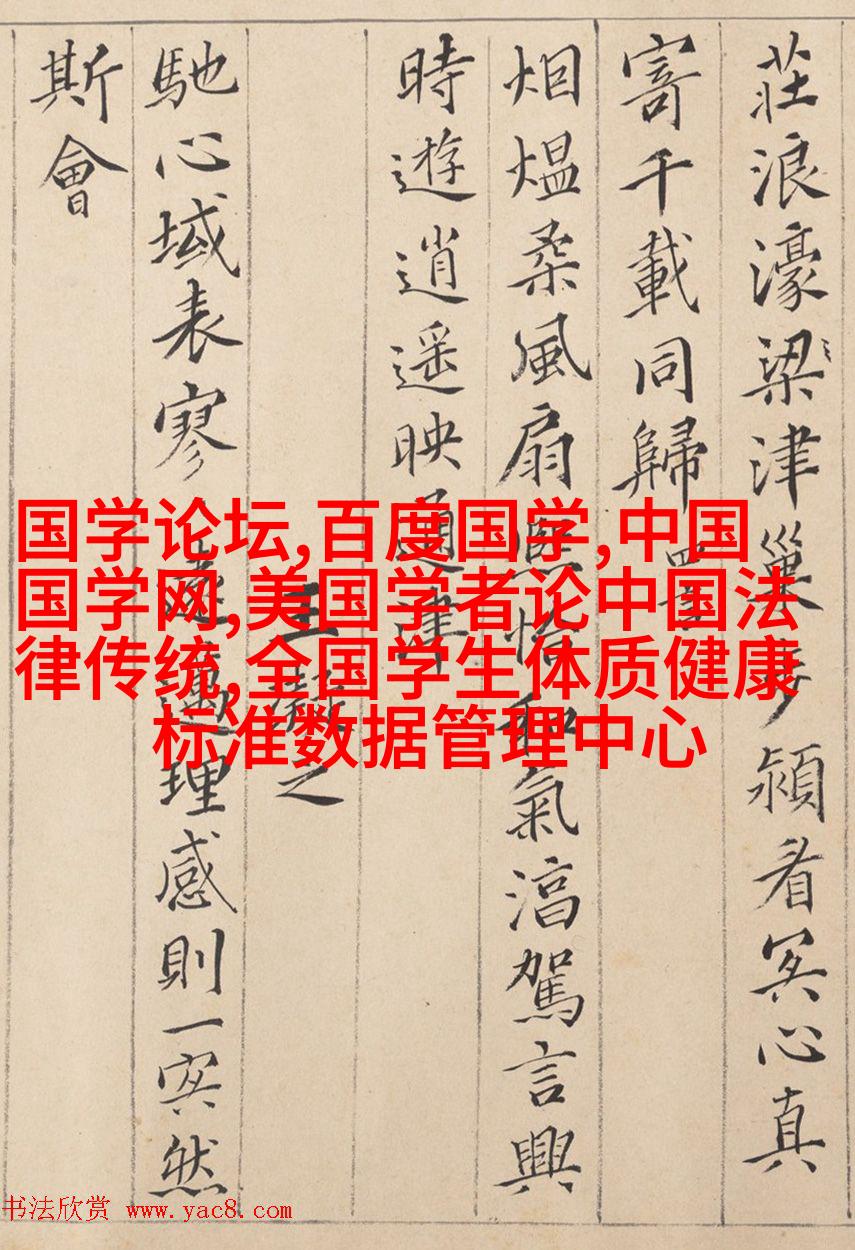 莊浪濠梁津巢步潁看冥心真
寄千載同歸
烟熅柔風扇熙怡和氣淳駕言興
時遊逍遥映通津
王凝之
馳心域表寥遠邁理感則一冥然
斯會
国学论坛,百度国学,中国
国学网,美国学者论中国法
律传统,全国学生体质健康
标准数据管理中心
书法欣赏 www.yac8.com